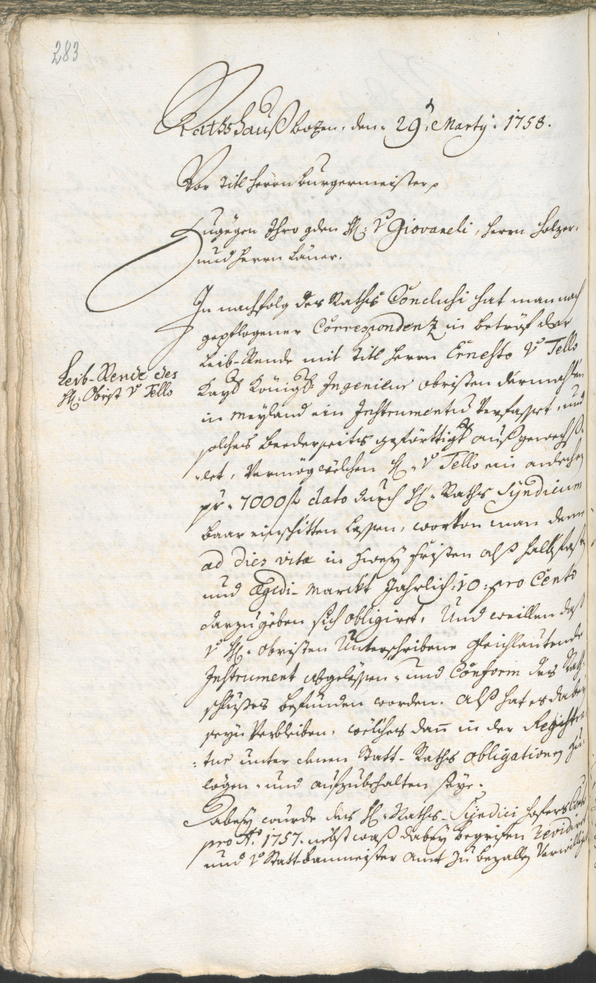 283
Rathshauß bozen, den 29. Marty: 1758.
Vor titl herrn burgermeister
Zugegen Ihro gden H: v Giovaneli, herrn holzer,
und herrn
Leib-Rende des
H: Obrist v Tello
In nachfolg des Raths Conclusi hat man nach
gepflogener Correspondenz in betreff der
Leib-Rende mit titl herrn Ernesto v Tello
Kay: König: Ingenieur obristen dermahlen
in Meyland ein Instrumentum verfasset, und
solches beederseitis geförttigt außgewech
-let, vermög welchem H: v Tello ein
pr: 7000 f dato durch H: Raths Syndicum
baar lassen, worvon man deme
ad dies vitæ in zwey fristen alß halbfasten
und Ægidi-Marckt Jahrlich: 10: pro Cento
darzugeben sich obligiret. Und weillen das
v H: obristen Unterschribene gleichlautende
Instrument abgelesen- und Conform des Rath
schlußes befunden worden. Alß hat es dabey
seyn verbleiben, welches dan in der Registra
-tur unter denen Statt-Raths obligationen zu
legen- und aufzubehalten seye.
Dabey wurde des H: Raths-Syndici
pro Ao. 1757. nebst waß dabey begrifen Revidirt
und v Stattbaumeister Amt zu bezallen